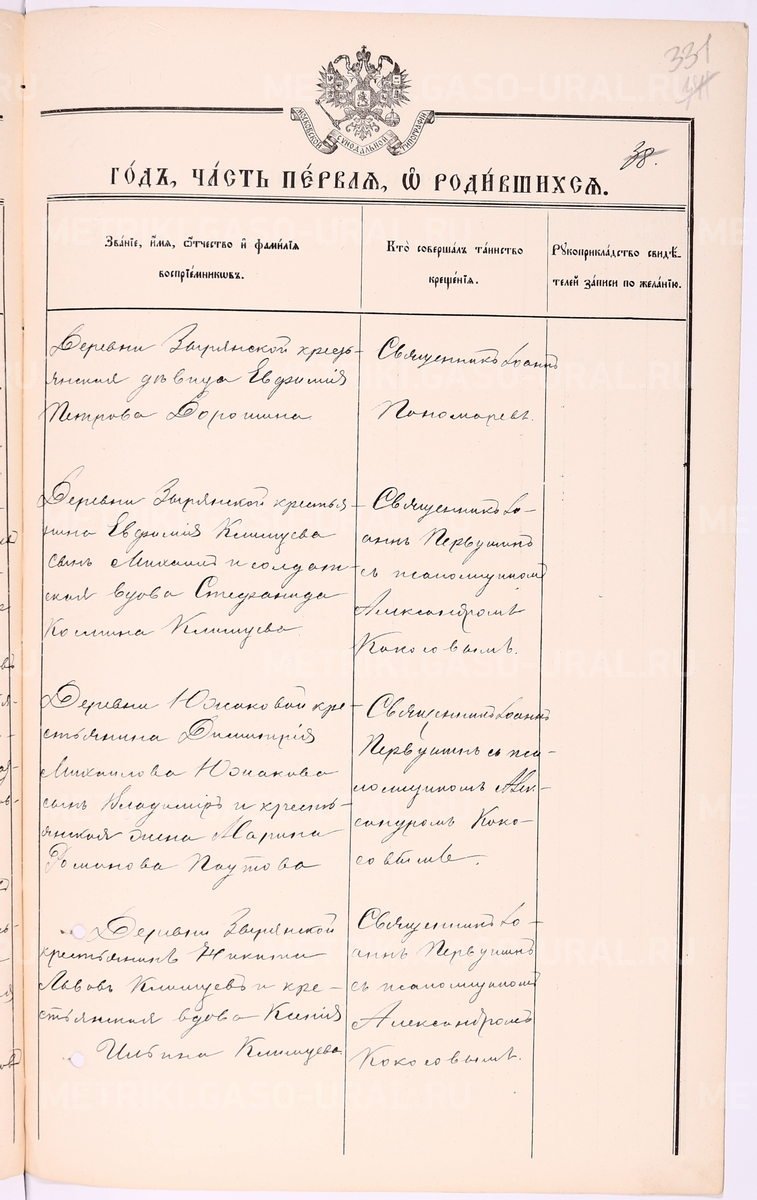 331
38.
МОСКОВСКОЙ СѴНОДАЛЬНОЙ ТИПОГРАФІИ
ГО́ДЪ, ЧА́СТЬ ПЕ́РВАѦ, Ѽ РОДИ́ВШИХСѦ.
Зва́нїе, и́мѧ, ѻ҆́тчество и҆ фами́лїѧ
воспрїе́мникѡвъ.
Кто̀ соверша́лъ та́инство
креще́нїѧ.
Рꙋкоприкла́дство свидѣ́-
телей за́писи по жела́нїю.
Деревни Зырянской кресть-
янская дѣвица Евфимія
Петрова Дорошина
Священникъ Іоаннъ
Пономаревъ.
Деревни Зырянской крестья-
нина Евфимія Клишуева
сынъ Михаилъ и солдат-
ская вдова Стефанида
Космина Клишуева
Священникъ Іо-
аннъ Первушинъ
съ псаломщикомъ
Александромъ
Кокосовымъ.
Деревни Южаковой кре-
стьянина Димитрія
Михаилова Южакова
сынъ Владиміръ и кресть-
янская жена Марина
Романова Паутова
Священникъ Іоаннъ
Первушинъ съ пса-
ломщикомъ Алек-
сандромъ Коко-
совымъ.
Деревни Зырянской
крестьянинъ Никита
Львовъ Клишуевъ и кре-
стьянская вдова Ксенія
Ильина Клишуева
Священникъ Іо-
аннъ Первушинъ
съ псаломщикомъ
Александромъ
Кокосовымъ.
METRIKI.GASO-URAL.RU